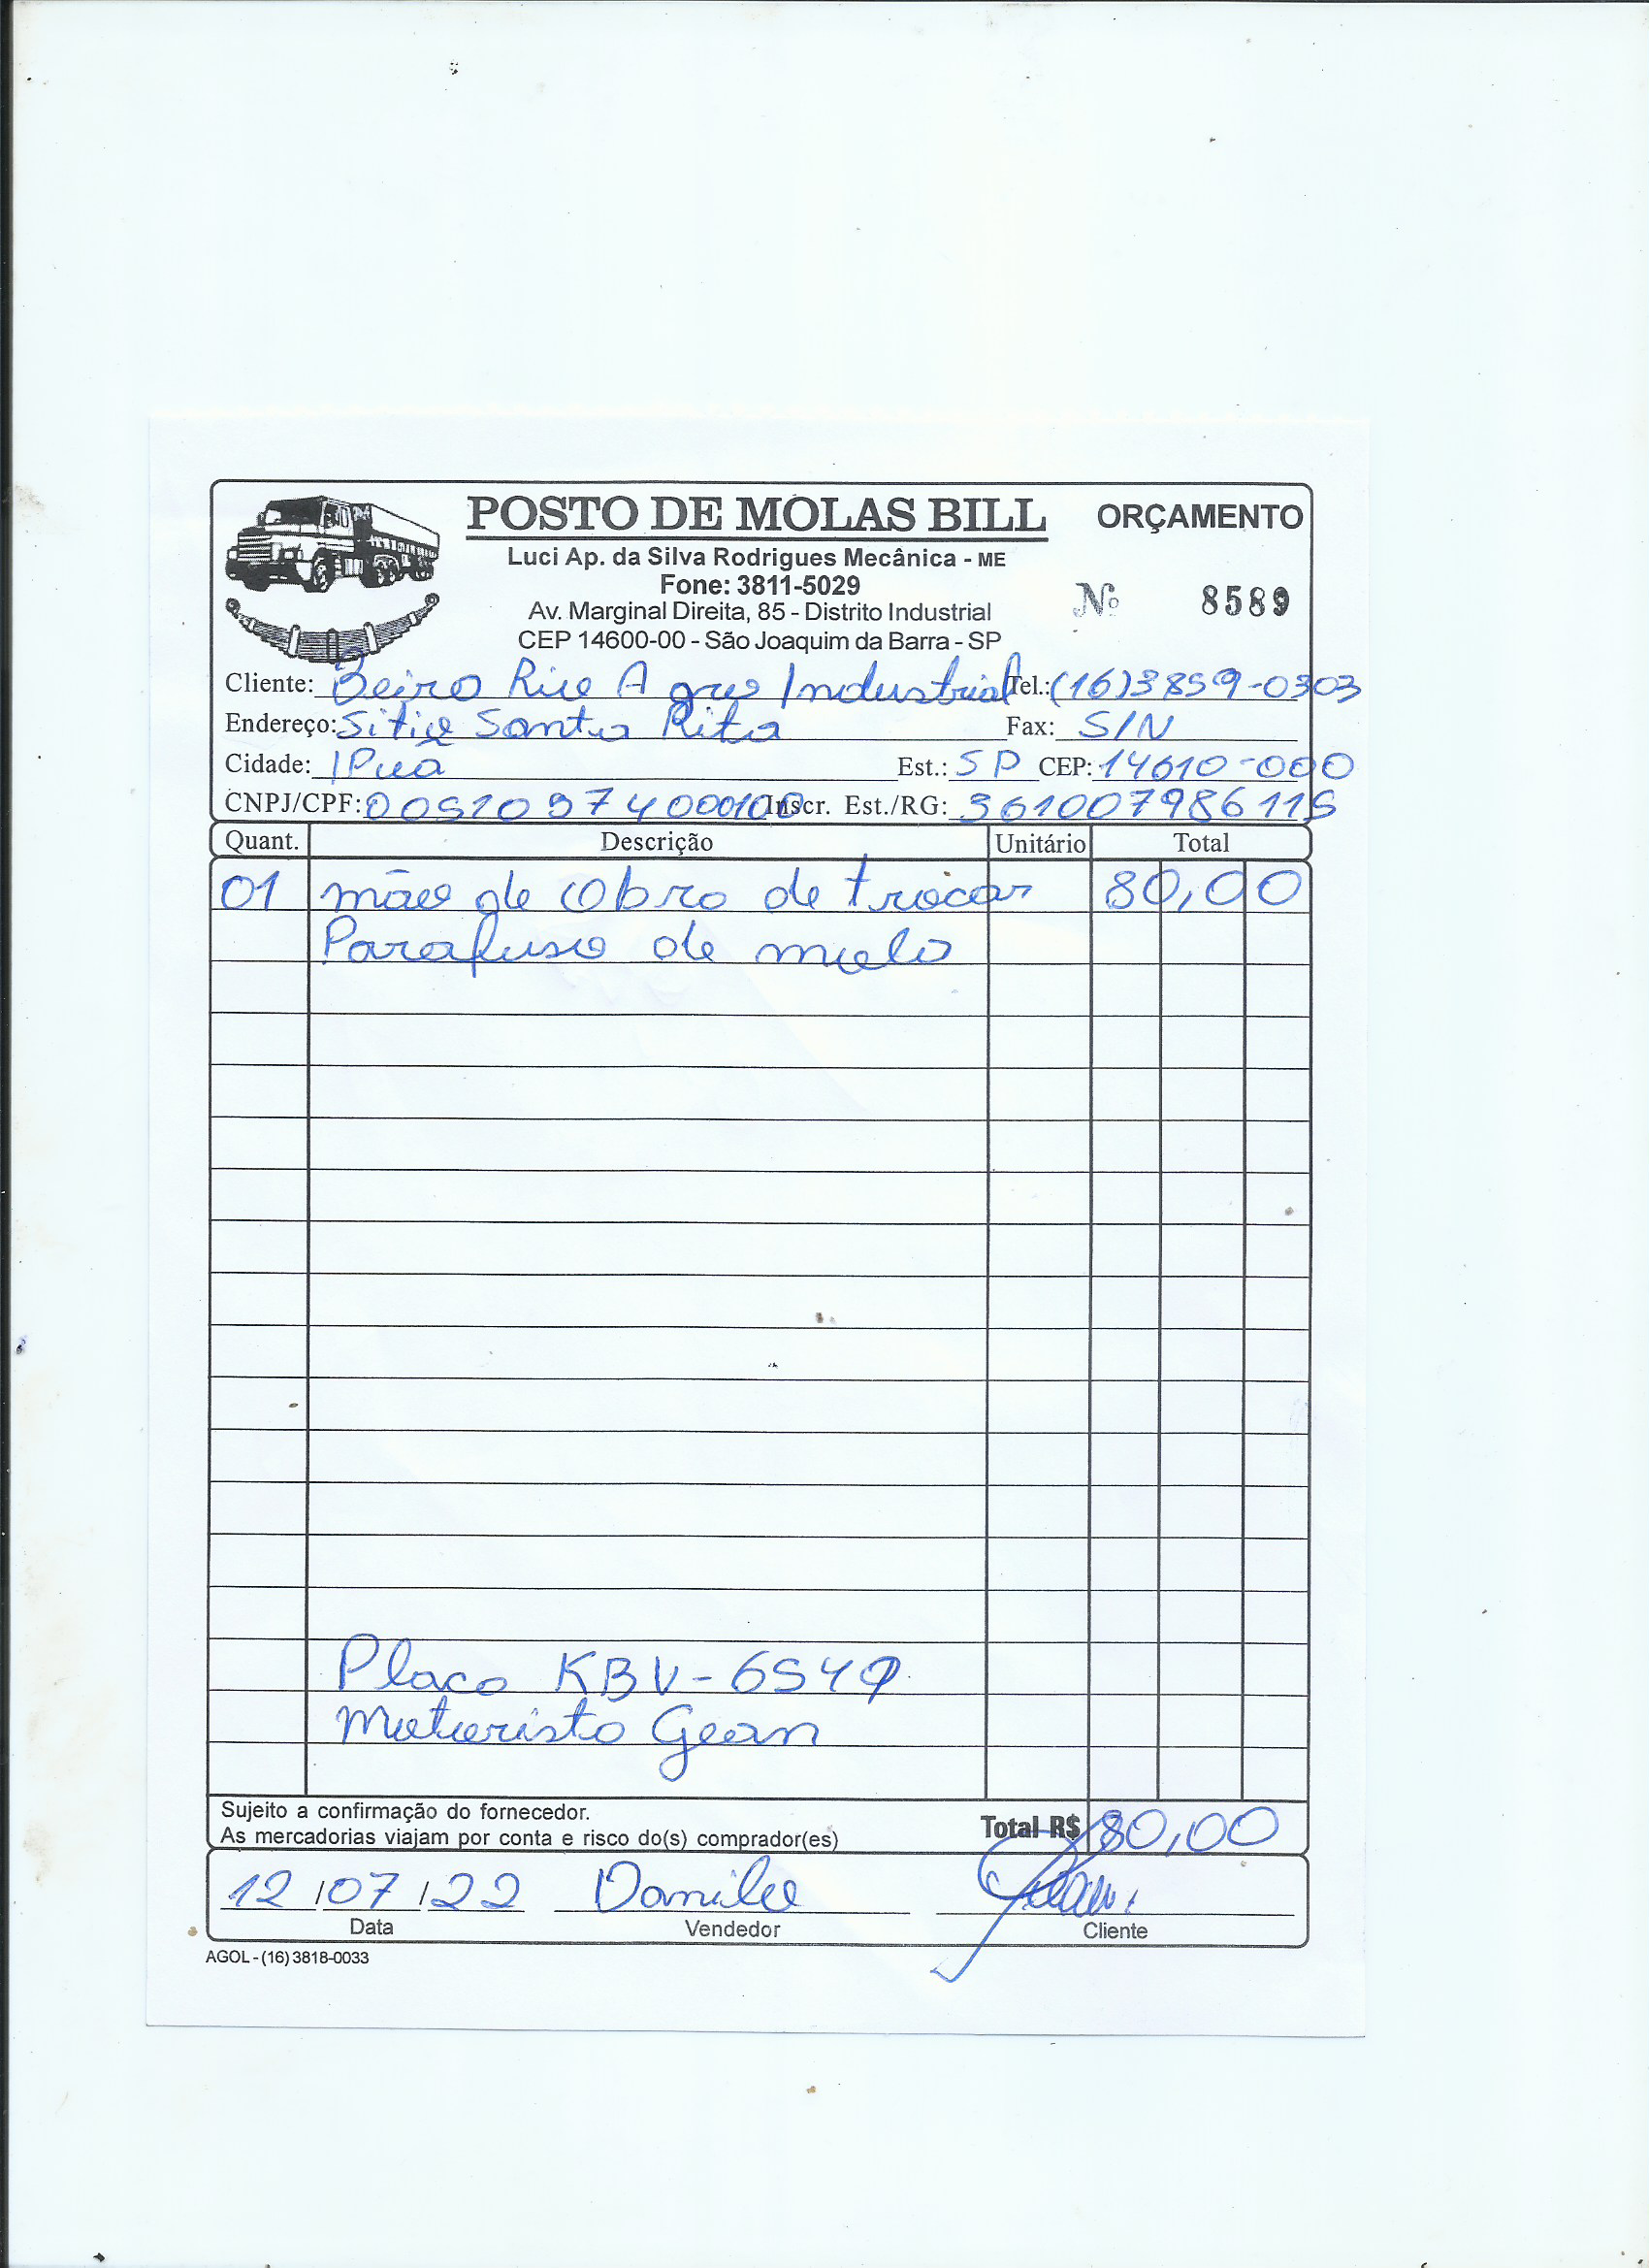 POSTO DE MOLAS BILL ORÇAMENTO
Luci Ap. da Silva Rodrigues Mecânica - ME
Fone: 3811-5029
Nº 8589
Av. Marginal Direita, 85 - Distrito Industrial
CEP 14600-00 - São Joaquim da Barra - SP
Cliente: Beira Rio Agro Industrial Tel.: (16)3859-0303
Endereço: Sitio Santa Rita Fax: S/N
Cidade: IPuã Est.: SP CEP: 14610-000
CNPJ/CPF: 00510974000100 Inscr. Est./RG: 361007986115
Quant. Descrição Unitário Total
01 mão de Obra de trocar 80,00
Parafuso de mola
Placa KBV-6549
Motorista Gean
Sujeito a confirmação do fornecedor.
As mercadorias viajam por conta e risco do(s) comprador(es) Total R$ 80,00
12/07/22 Danilo
Data Vendedor Cliente
AGOL - (16) 3818-0033